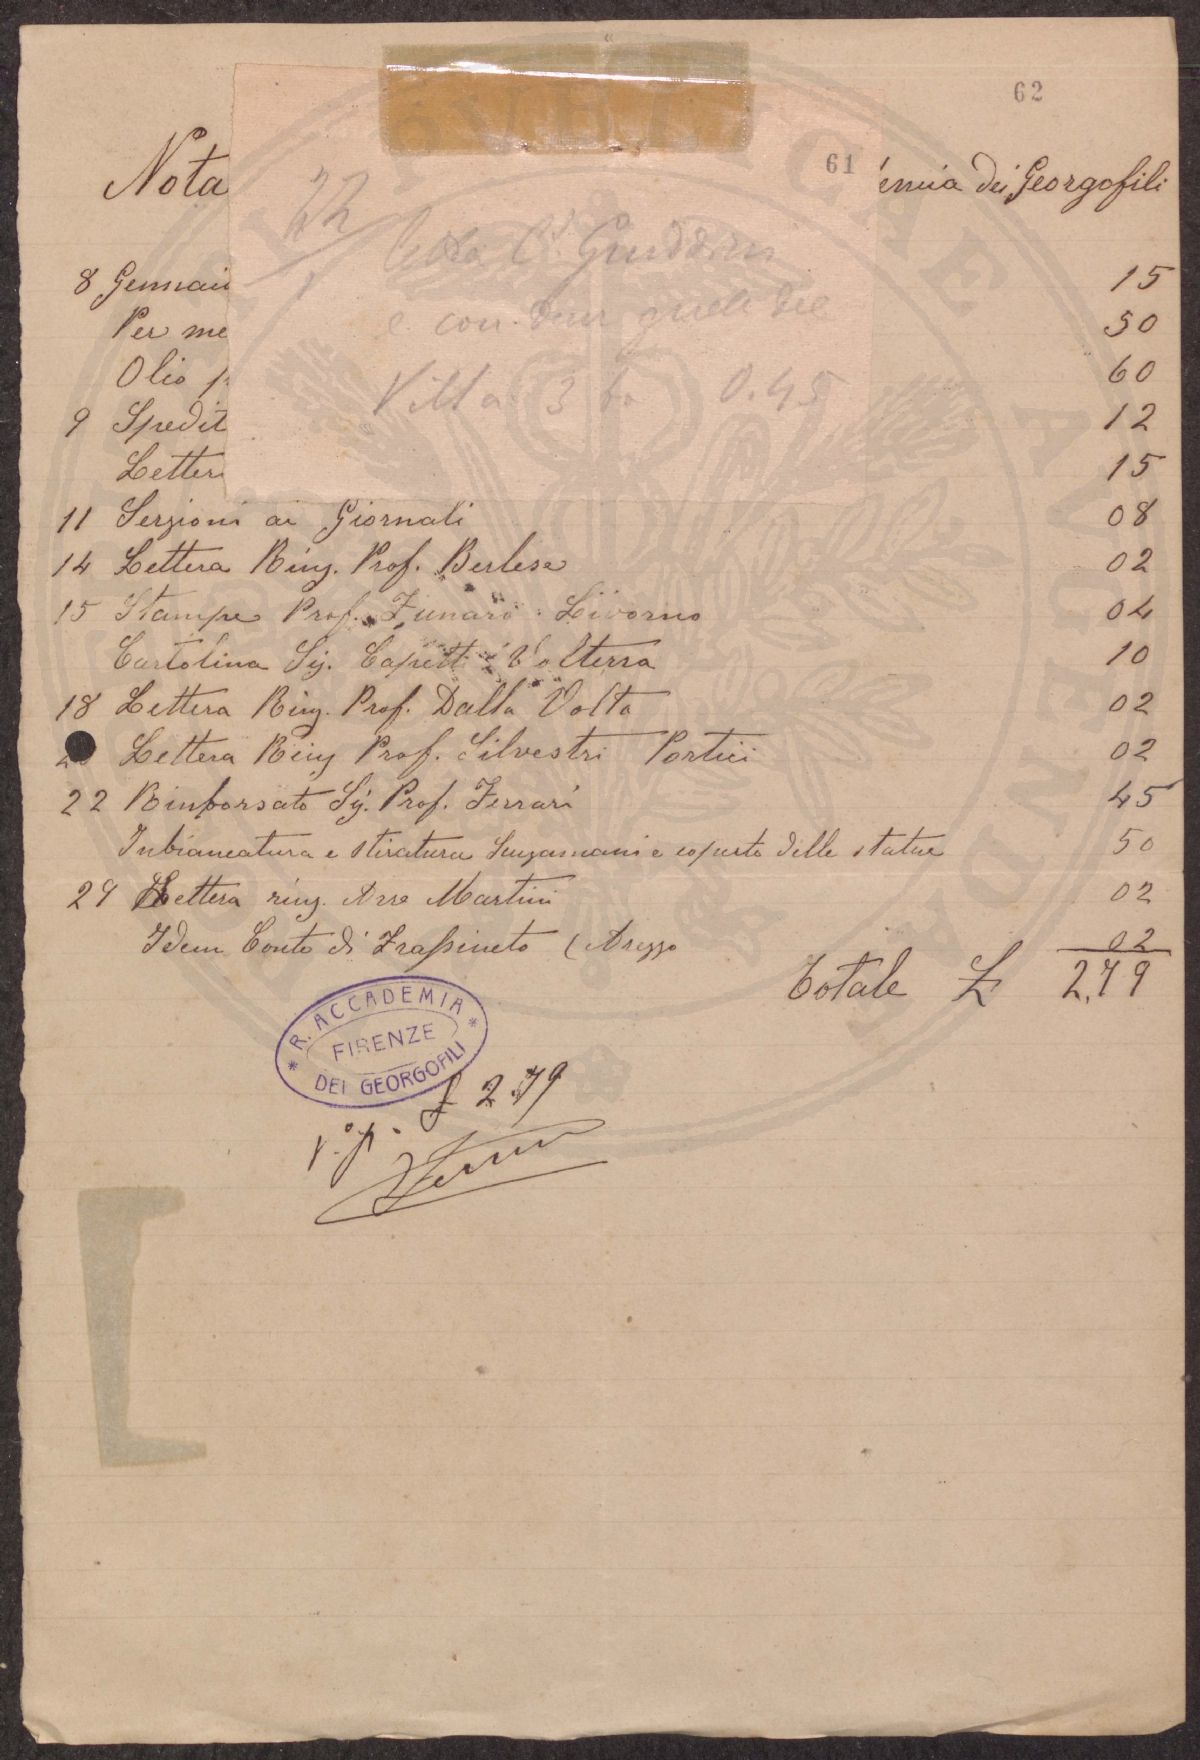 62
61
Nota
emia dei Georgofili
22
e con
Villa 3 0.45
8 Gennaio 15
Per me 50
Olio p 60
9 Spedit 12
Lettera 15
11 Inserzioni ai Giornali 08
14 Lettera Ring. Prof. Berlese 02
15 Stampe Prof. Funaro Livorno 04
Cartolina Sig. Capetti Volterra 10
18 Lettera Ring. Prof. Dalla Volta 02
Lettera Ring Prof. Silvestri Portici 02
22 Rimborsato Sig. Prof. Ferrari 45
Inbiancatura e stiratura e coperte delle statue 50
29 Lettera ring. Martini 02
Idem Conte di Frassineto (Arezzo 02
Totale £ 2,79
R. ACCADEMIA
FIRENZE
DEI GEORGOFILI
£ 2.79
V. p.